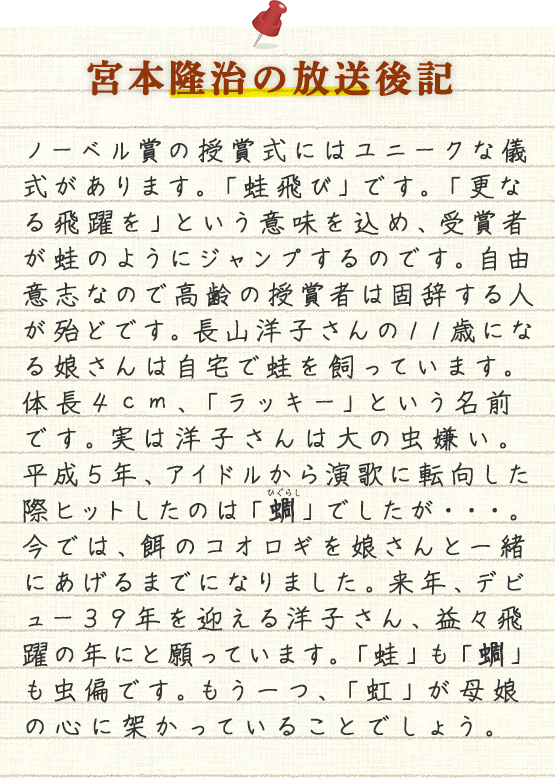 宮本隆治の放送後記
ノーベル賞の授賞式にはユニークな儀
式があります。「蛙飛び」です。「更な
る飛躍を」という意味を込め、受賞者
が蛙のようにジャンプするのです。自由
意志なので高齢の授賞者は固辞する人
が殆どです。長山洋子さんの11歳にな
る娘さんは自宅で蛙を飼っています。
体長4cm、「ラッキー」という名前
です。実は洋子さんは大の虫嫌い。
平成5年、アイドルから演歌に転向した
ひぐらし
際ヒットしたのは「蜩」でしたが・・・。
今では、餌のコオロギを娘さんと一緒
にあげるまでになりました。来年、デビ
ュー39年を迎える洋子さん、益々飛
躍の年にと願っています。「蛙」も「蜩」
も虫偏です。もう一つ、「虹」が母娘
の心に架かっていることでしょう。